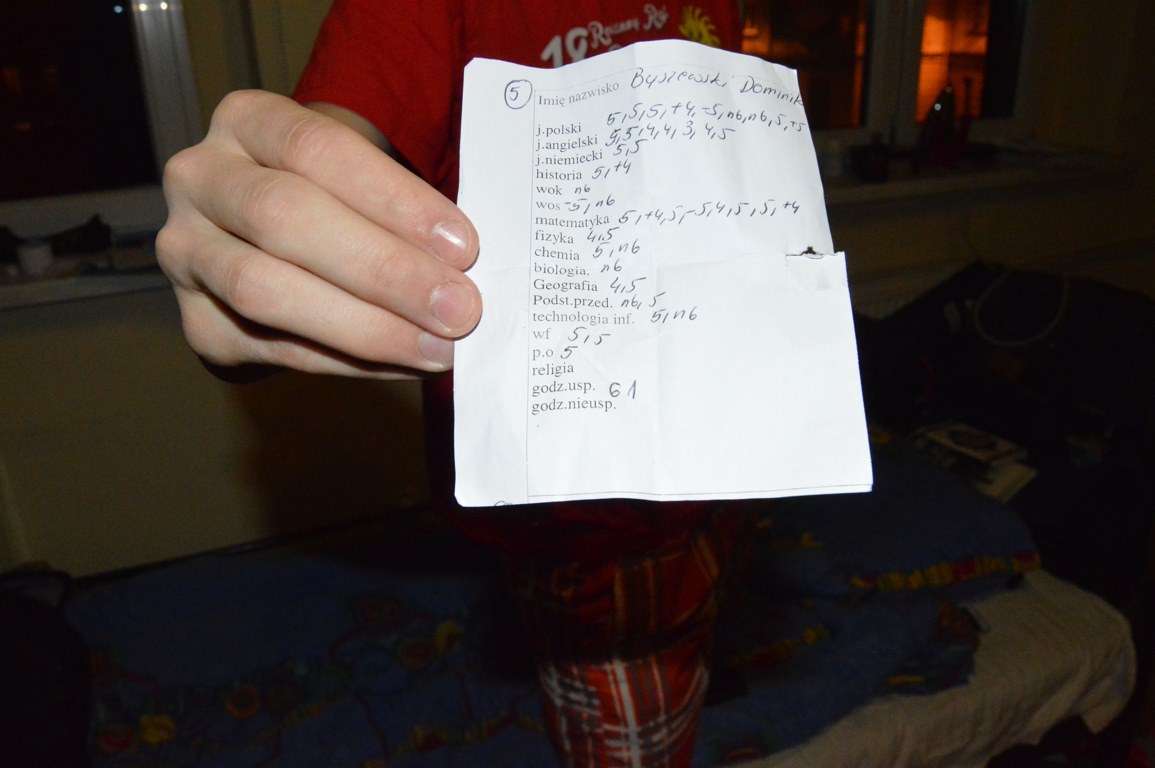 18 Roczny Ra
5
Imię nazwisko Byszewski Dominik
j.polski 5,5,5,+4,-5,n6,n6,5,+5
j.angielski 5,5,4,4,3,4,5
j.niemiecki 5,5
historia 5,+4
wok n6
wos -5,n6
matematyka 5,+4,5,-5,4,5,5,+4
fizyka 4,5
chemia 5,n6
biologia. n6
Geografia 4,5
Podst.przed. n6,5
technologia inf. 5,n6
wf 5,5
p.o 5
religia
godz.usp. 61
godz.nieusp.